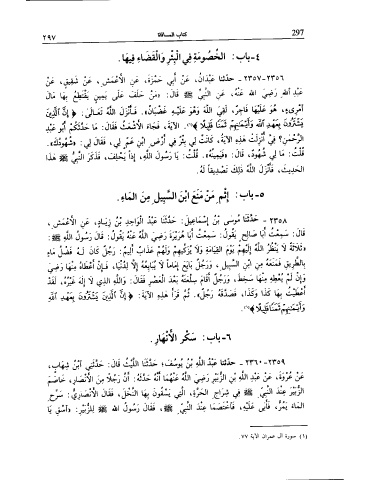 ٢٩٧ كتاب المساقاة 297
٤- باب: الخُصُومَةِ فِي الْبِئْرِ وَالْقَضَاءِ فِيهَا.
٢٣٥٦-٢٣٥٧ - حدثنا عَبْدَانُ، عَنْ أَبِي حَمْزَةَ، عَنِ الأَعْمَشِ، عَنْ شَقِيقٍ، عَنْ
عَبْدِ اللهِ رَضِيَ اللهُ عَنْهُ، عَنِ النَّبِيِّ ﷺ قَالَ: «مَنْ حَلَفَ عَلَى يَمِينٍ يَقْتَطِعُ بِهَا مَالَ
امْرِىءٍ، هُوَ عَلَيْهَا فَاجِرٌ، لَقِيَ اللهَ وَهُوَ عَلَيْهِ غَضْبَانُ». فَأَنْزَلَ اللهُ تَعَالَى: ﴿إِنَّ الَّذِينَ
يَشْتَرُونَ بِعَهْدِ اللهِ وَأَيْمَانِهِمْ ثَمَنًا قَلِيلًا﴾(١) الآيَةَ، فَجَاءَ الأَشْعَثُ فَقَالَ: مَا حَدَّثَكُمْ أَبُو عَبْدِ
الرَّحْمٰنِ؟ فِيَّ أُنْزِلَتْ هٰذِهِ الآيَةُ، كَانَتْ لِي بِئْرٌ فِي أَرْضِ ابْنِ عَمٍّ لِي، فَقَالَ لِي: «شُهُودَكَ».
قُلْتُ: مَا لِي شُهُودٌ، قَالَ: «فَيَمِينُهُ». قُلْتُ: يَا رَسُولَ اللهِ، إِذًا يَحْلِفَ، فَذَكَرَ النَّبِيُّ ﷺ هٰذَا
الحَدِيثَ، فَأَنْزَلَ اللهُ ذٰلِكَ تَصْدِيقًا لَهُ.
٥- باب: إِثْمِ مَنْ مَنَعَ ابْنَ السَّبِيلِ مِنَ المَاءِ.
٢٣٥٨ - حدثنا مُوسَى بْنُ إِسْمَاعِيلَ: حَدَّثَنَا عَبْدُ الْوَاحِدِ بْنُ زِيَادٍ، عَنِ الأَعْمَشِ،
قَالَ: سَمِعْتُ أَبَا صَالِحٍ يَقُولُ: سَمِعْتُ أَبَا هُرَيْرَةَ رَضِيَ اللهُ عَنْهُ يَقُولُ: قَالَ رَسُولُ اللهِ ﷺ:
«ثَلَاثَةٌ لَا يَنْظُرُ اللهُ إِلَيْهِمْ يَوْمَ الْقِيَامَةِ وَلَا يُزَكِّيهِمْ وَلَهُمْ عَذَابٌ أَلِيمٌ: رَجُلٌ كَانَ لَهُ فَضْلُ مَاءٍ
بِالطَّرِيقِ فَمَنَعَهُ مِنِ ابْنِ السَّبِيلِ، وَرَجُلٌ بَايَعَ إِمَامًا لَا يُبَايِعُهُ إِلَّا لِدُنْيَا، فَإِنْ أَعْطَاهُ مِنْهَا رَضِيَ
وَإِنْ لَمْ يُعْطِهِ مِنْهَا سَخِطَ، وَرَجُلٌ أَقَامَ سِلْعَتَهُ بَعْدَ الْعَصْرِ فَقَالَ: وَاللهِ الَّذِي لَا إِلٰهَ غَيْرُهُ، لَقَدْ
أَعْطَيْتُ بِهَا كَذَا وَكَذَا، فَصَدَّقَهُ رَجُلٌ». ثُمَّ قَرَأَ هٰذِهِ الآيَةَ: ﴿إِنَّ الَّذِينَ يَشْتَرُونَ بِعَهْدِ اللهِ
وَأَيْمَانِهِمْ ثَمَنًا قَلِيلًا﴾(١).
٦- باب: سَكْرِ الأَنْهَارِ.
٢٣٥٩-٢٣٦٠ - حدثنا عَبْدُ اللهِ بْنُ يُوسُفَ: حَدَّثَنَا اللَّيْثُ قَالَ: حَدَّثَنِي ابْنُ شِهَابٍ،
عَنْ عُرْوَةَ، عَنْ عَبْدِ اللهِ بْنِ الزُّبَيْرِ رَضِيَ اللهُ عَنْهُمَا أَنَّهُ حَدَّثَهُ: أَنَّ رَجُلًا مِنَ الأَنْصَارِ، خَاصَمَ
الزُّبَيْرَ عِنْدَ النَّبِيِّ ﷺ فِي شِرَاجِ الحَرَّةِ، الَّتِي يَسْقُونَ بِهَا النَّخْلَ، فَقَالَ الأَنْصَارِيُّ: سَرِّحِ
المَاءَ يَمُرُّ، فَأَبَى عَلَيْهِ، فَاخْتَصَمَا عِنْدَ النَّبِيِّ ﷺ، فَقَالَ رَسُولُ اللهِ ﷺ لِلزُّبَيْرِ: «اسْقِ يَا
(١) سورة آل عمران الآية ٧٧.